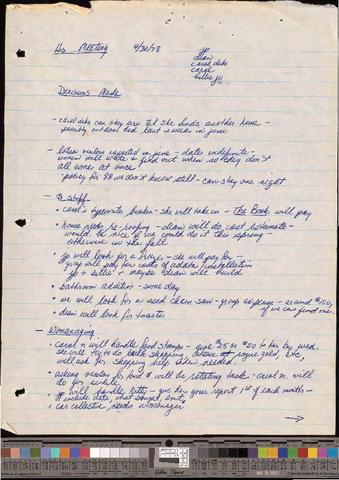 Ho Meeting 4/30/78
jo
dian
carol debs
carol
billie jo
Decisions Made
- carol debs can stay here til she finds another home -
possibly outdoor bed last 2 weeks in june
- lotsa visitors expected in june - dates indefinite -
women will write & find out when so they don't
all come at once
policy for $ we don't know still - can stay one night
- $ stuff
• carol's typewriter broken - she will take in - The Book will pay
• house needs re-roofing - dian will do cost estimate -
would be nice if we could do it this spring -
otherwise in the fall
• jo will look for a freezer - she will pay for -
group will pay for costs of installation
jo & billie & maybe dian will build
• bathroom addition - some day
• we will look for a used chain saw - group expense - around $150,
if we can find one.
• dian will look for toaster
- Womanaging
• carol n will handle food stamps - give $ or $50 to her by wed.
she will try to do bulk shopping cheese at rogue gold, etc,
will ask for shopping help when needed.
• asking for food $ will be rotating task - carol n. will
do for awhile
• jo will handle kitty - give her your report 1st of each month -
include date, what bought, amt.
• can collective needs womanager
→